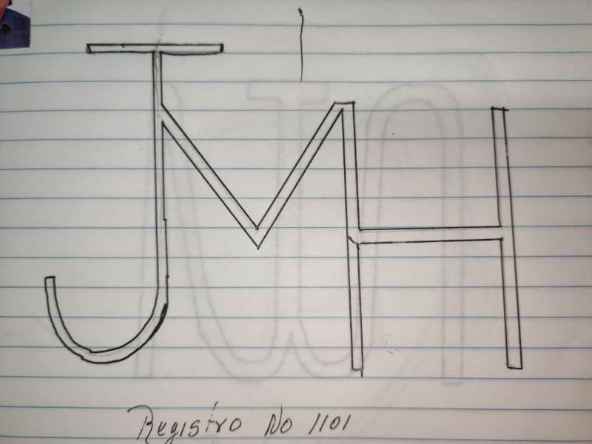 JMH
Registro No 1101